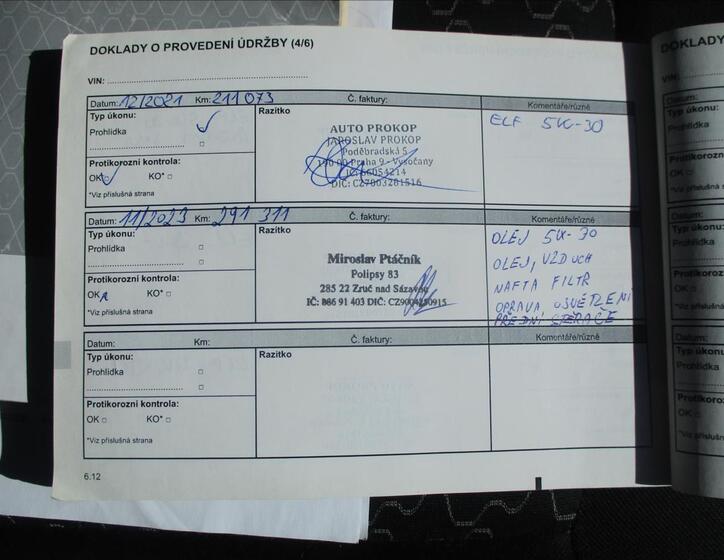 DOKLADY O PROVEDENÍ ÚDRŽBY (4/6)
VIN:
Datum: 12/2021 Km: 211 073 Č. faktury: Komentáře/různé
Typ úkonu: Razítko
Prohlídka
Protikorozní kontrola:
OK KO*
*Viz příslušná strana
AUTO PROKOP
JAROSLAV PROKOP
Poděbradská 5
190 00 Praha 9 - Vysočany
DIČ: CZ7003281516
ELF 5W-30
Datum: 11/2023 Km: 291 311 Č. faktury: Komentáře/různé
Typ úkonu: Razítko
Prohlídka
Protikorozní kontrola:
OK KO*
*Viz příslušná strana
Miroslav Ptáčník
Polipsy 83
285 22 Zruč nad Sázavou
IČ: 886 91 403 DIČ:
OLEJ 5W-30
OLEJ, VZDUCH
NAFTA FILTR
OPRAVA OSVĚTLENÍ
PŘEDNÍ STĚRAČE
Datum: Km: Č. faktury: Komentáře/různé
Typ úkonu: Razítko
Prohlídka
Protikorozní kontrola:
OK KO*
*Viz příslušná strana
6.12
DOKLADY
VIN:
Datum:
Typ úkonu:
Prohlídka
Protikoroz
OK
*Viz příslušn
Datum:
Typ úkonu
Prohlídka
Protikoro
OK
*Viz příslu
Datum:
Typ úko
Prohlíd
Protikor
OK
*Viz pří